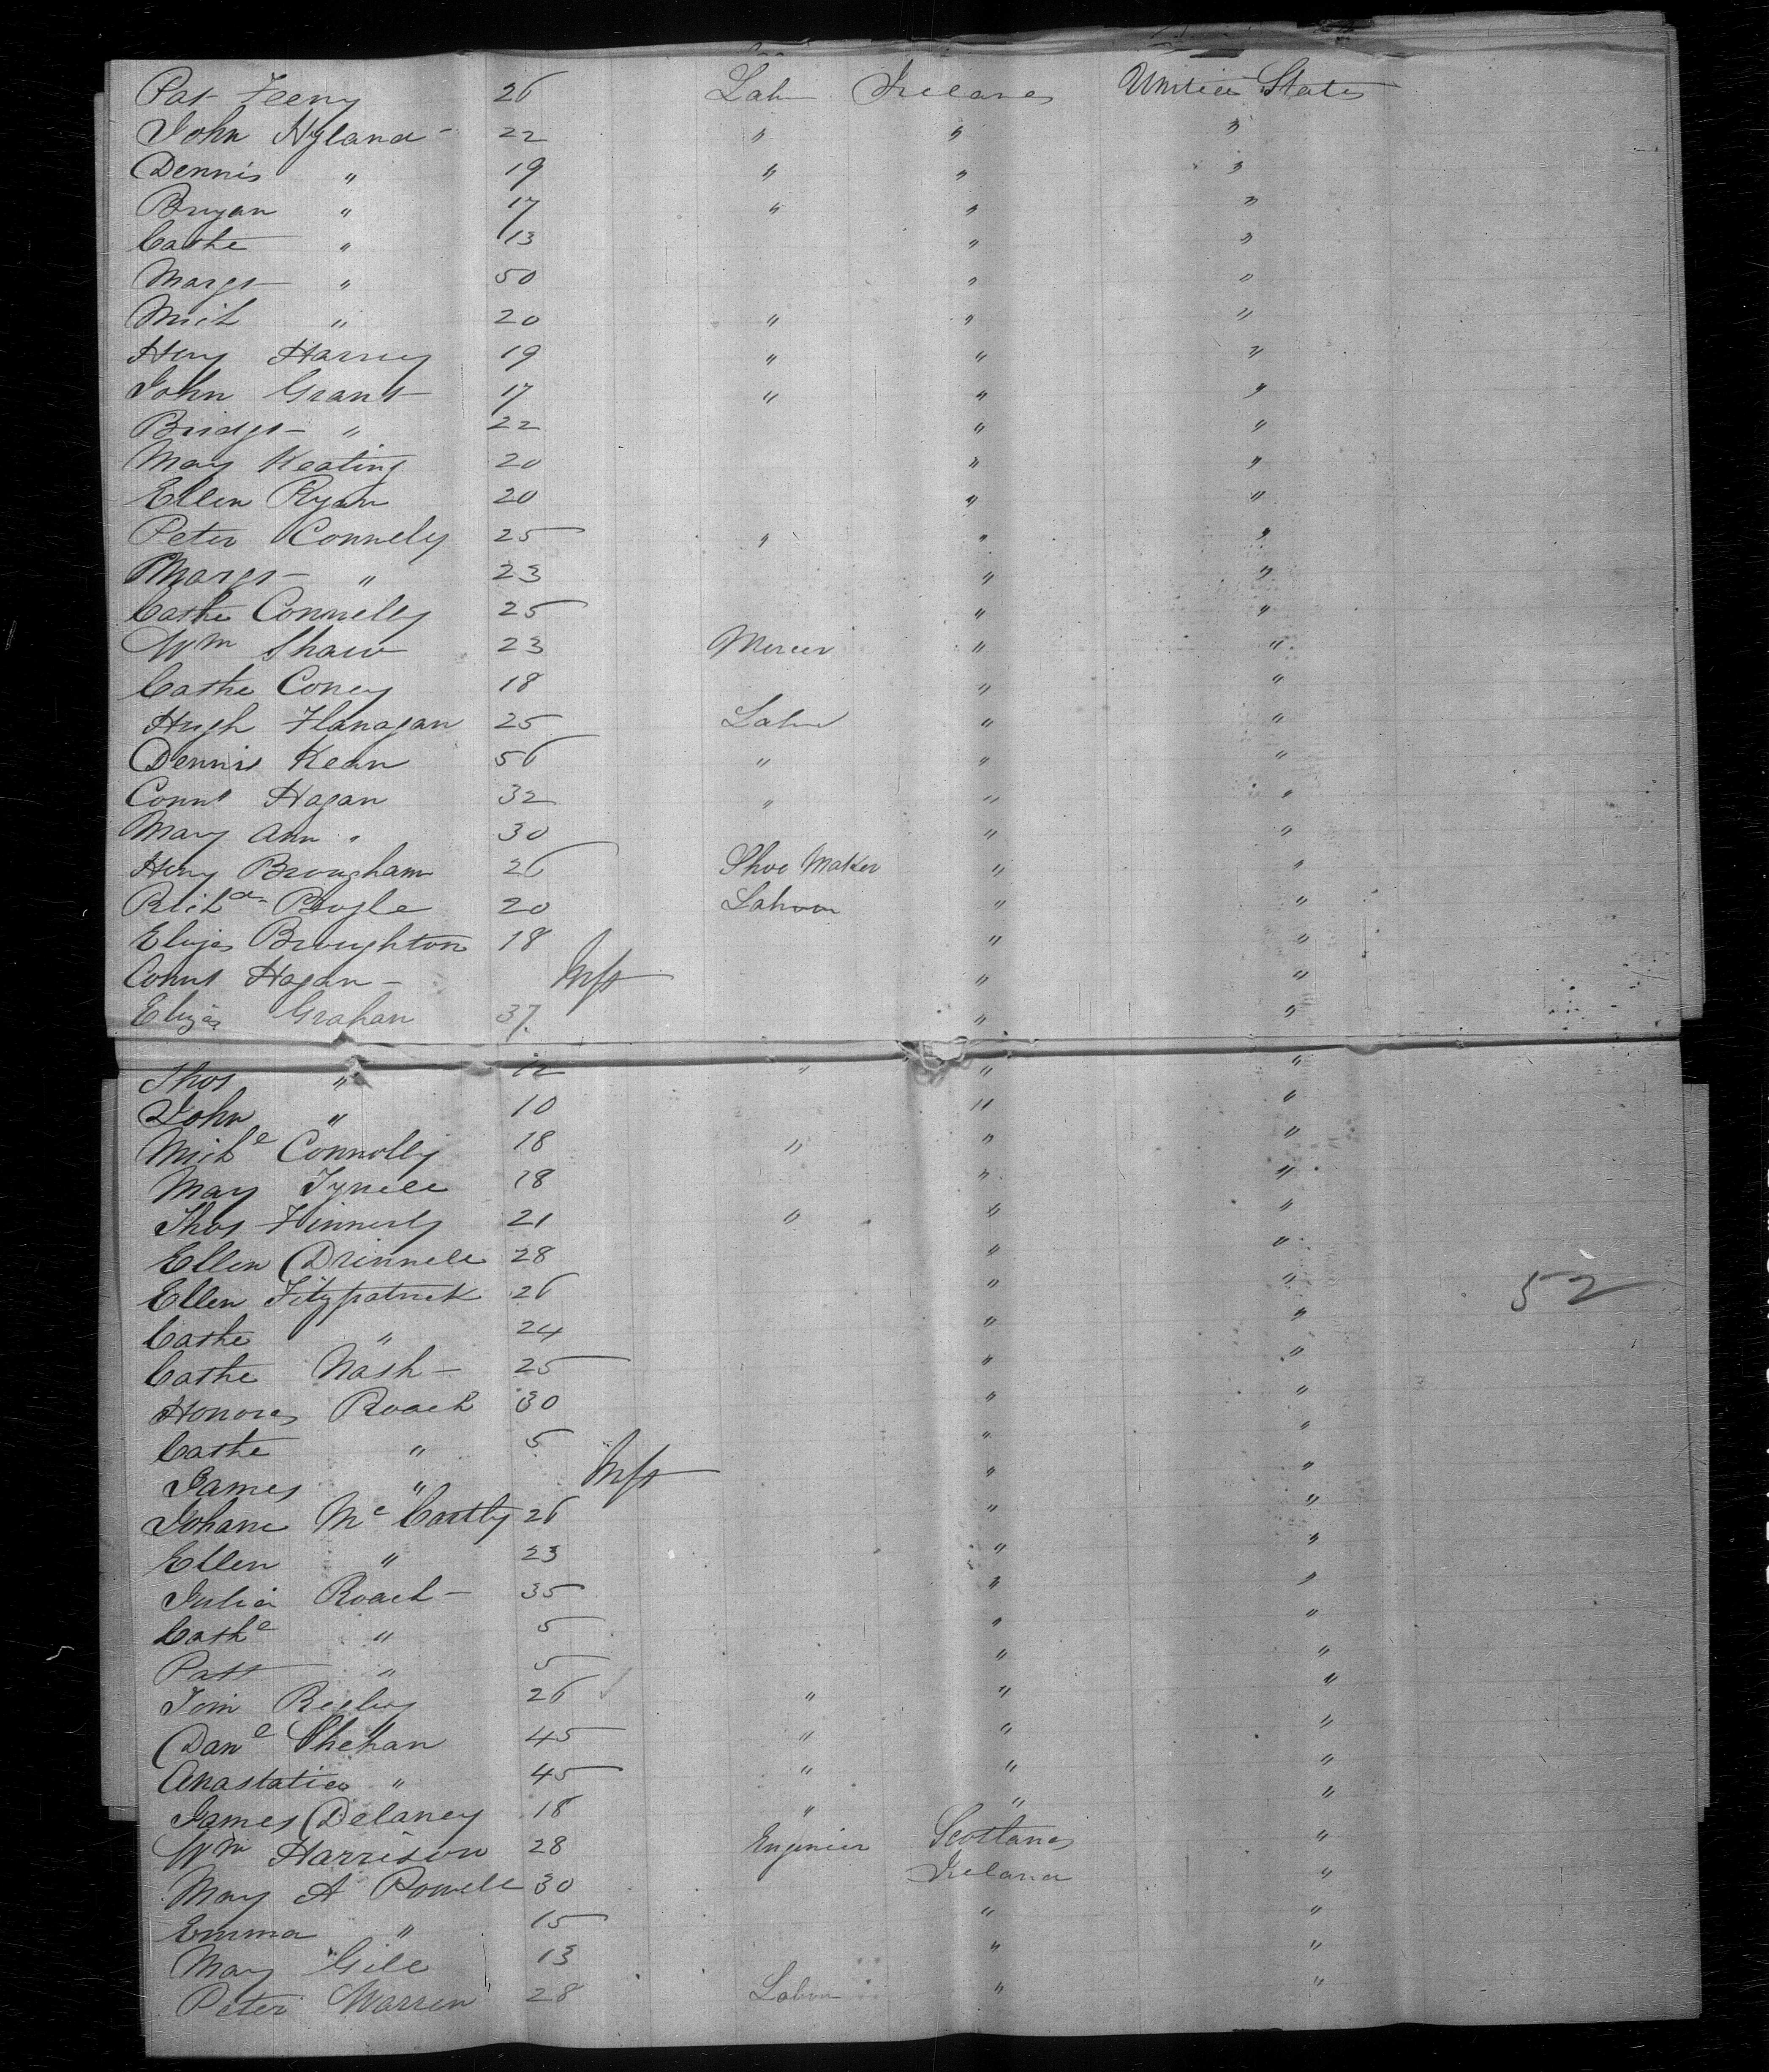 Pat Feeny 26 Labr Ireland United States
John Hyland 22 " " "
Dennis " 19 " " "
Bryan " 17 " " "
Cathe " 13 " "
Margt " 50 " "
Mich " 20 " " "
Heny Harvey 19 " " "
John Grant 17 " " "
Bridgt " 22 " "
Mary Keating 20 " "
Ellen Ryan 20 " "
Peter Connely 25 " " "
Margt " 23 " "
Cathe Connelly 25 " "
Wm Shaw 23 Mercer " "
Cathe Coney 18 " "
Hugh Flanagan 25 Labr " "
Dennis Kean 56 " " "
Conns Hagan 32 " " "
Mary Ann " 30 " "
Heny Brougham 26 Shoe Maker " "
Richd Bogle 20 Labour " "
Eliza Broughton 18 " "
Conns Hagan Inft " "
Eliza Grahan 37 " "
Thos " 12 " " "
John " 10 " "
Miche Connolly 18 " " "
Mary 18 " "
Thos Finnerty 21 " " "
Ellen Drinnell 28 " "
Ellen Fitzpatrick 26 " "
Cathe " 24 " "
Cathe Nash 25 " "
Honora Roach 30 " "
Cathe " 5 " "
James " Inft " "
Johana Mc Carthy 26 " "
Ellen " 23 " "
Julia Roach 35 " "
Cathe " 5 " "
Patt " 5 " "
Tom Begley 26 " " "
Dane Shehan 45 " " "
Anastatia " 45 " " "
James Delaney 18 " " "
Wm Harrison 28 Enginier Scotland "
Mary A Powell 30 Ireland "
Emma " 15 " "
Mary Gill 13 " "
Peter Warren 28 Labour " "
52